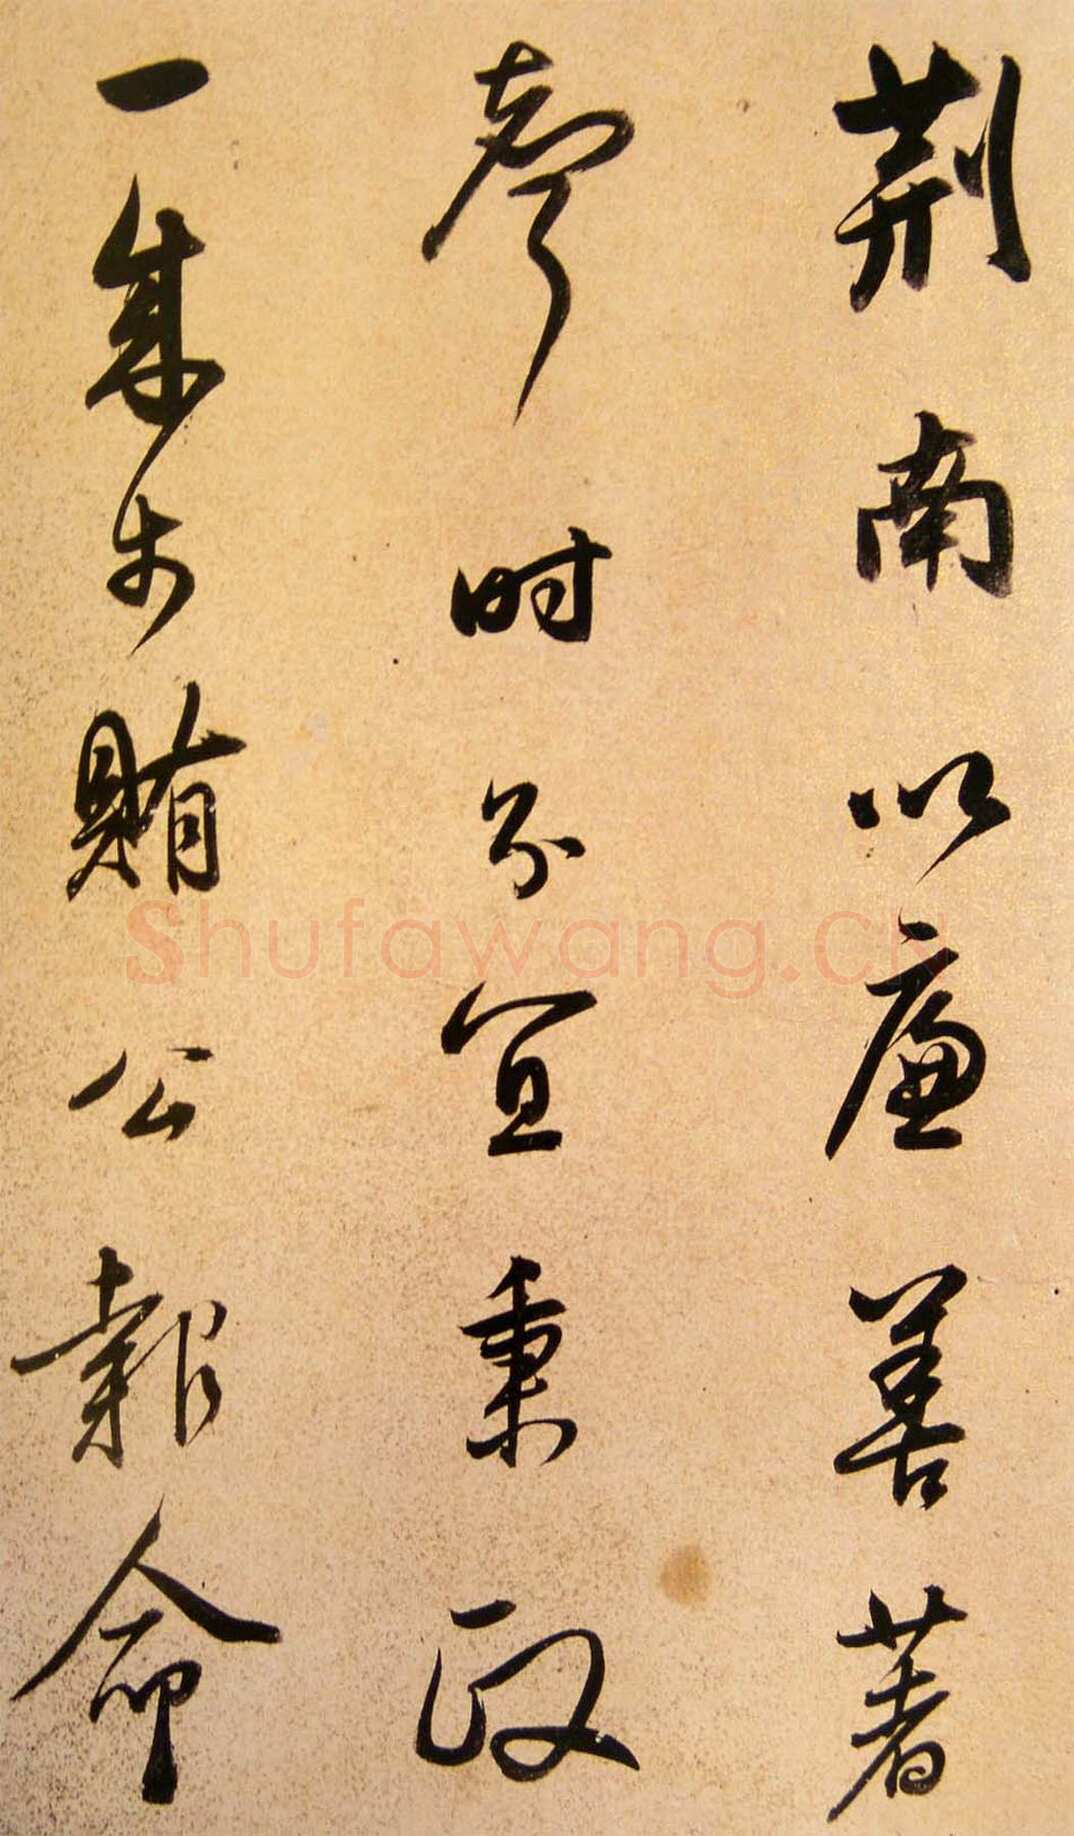 荆南以廉善著
聲时分宜秉政
一賄公報命
Shufawang.CN